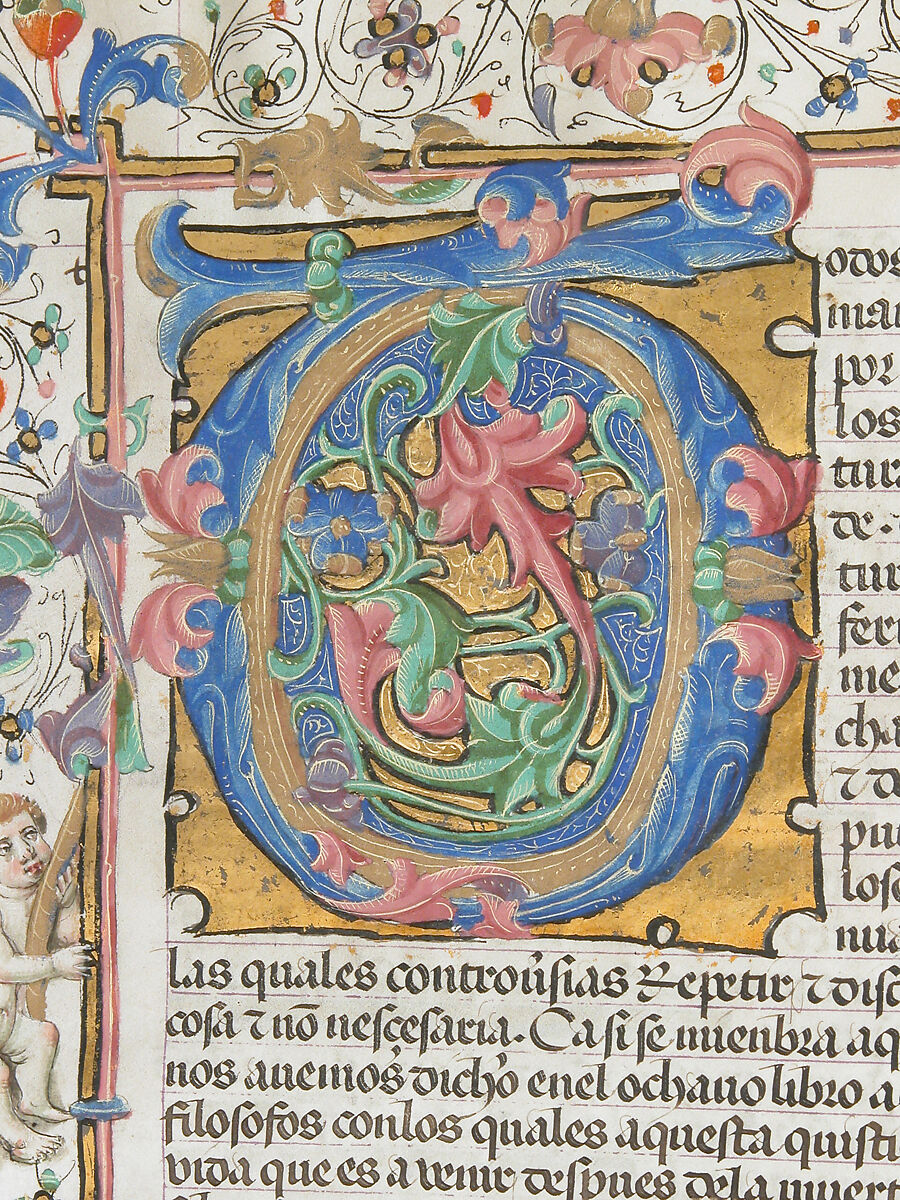 odos
mar
por
los
tura
de. 
tur
fer
me
cha
⁊ do
pu
loso
nua
las quales controũsias Repetir ⁊ disc
cosa ⁊ nõ nescesaria. Ca si se mienbra aq
nos auemos dicho enel ochauo libro a
filosofos conlos quales aquesta quisti
vida que es a venir despues dela muert